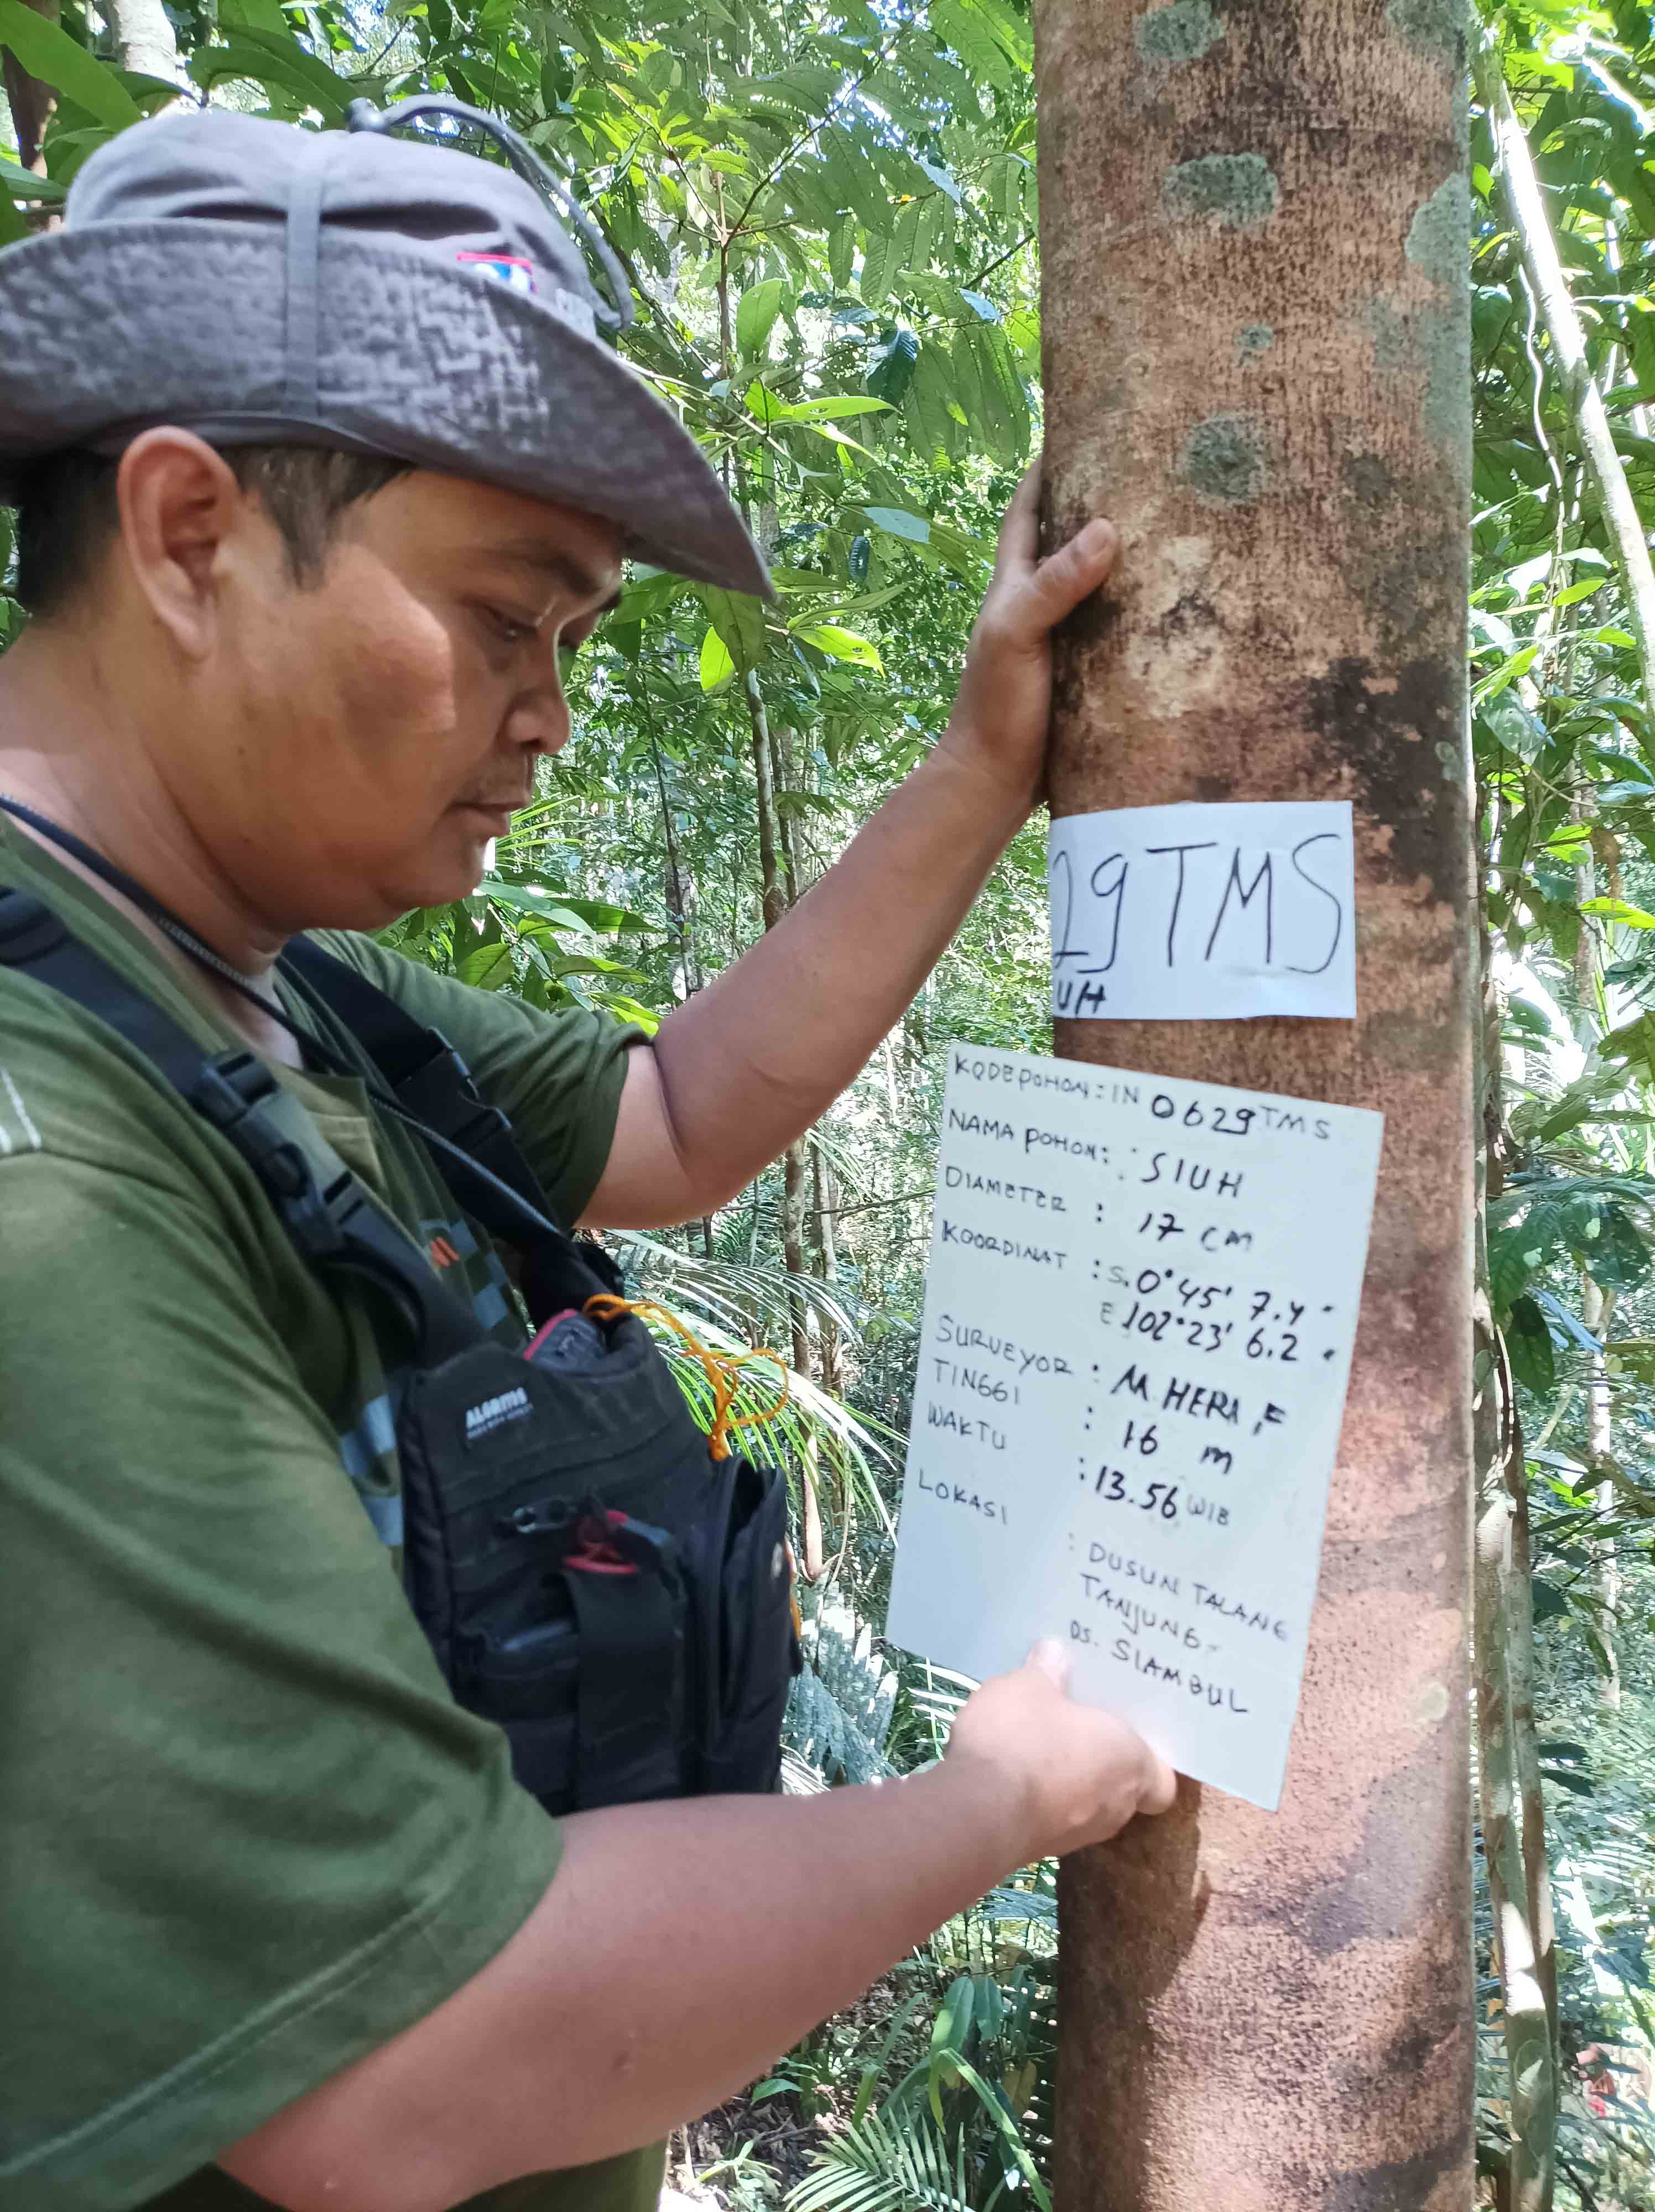 29TMS
UH
KODE POHON : IN 0629 TMS
NAMA POHON : SIUH
DIAMETER : 17 CM
KOORDINAT : S. 0°45' 7.4"
E 102°23' 6.2"
SURVEYOR : M. HERI .F
TINGGI : 16 m
WAKTU : 13.56 WIB
LOKASI : DUSUN TALANG
TANJUNG-
DS. SIAMBUL